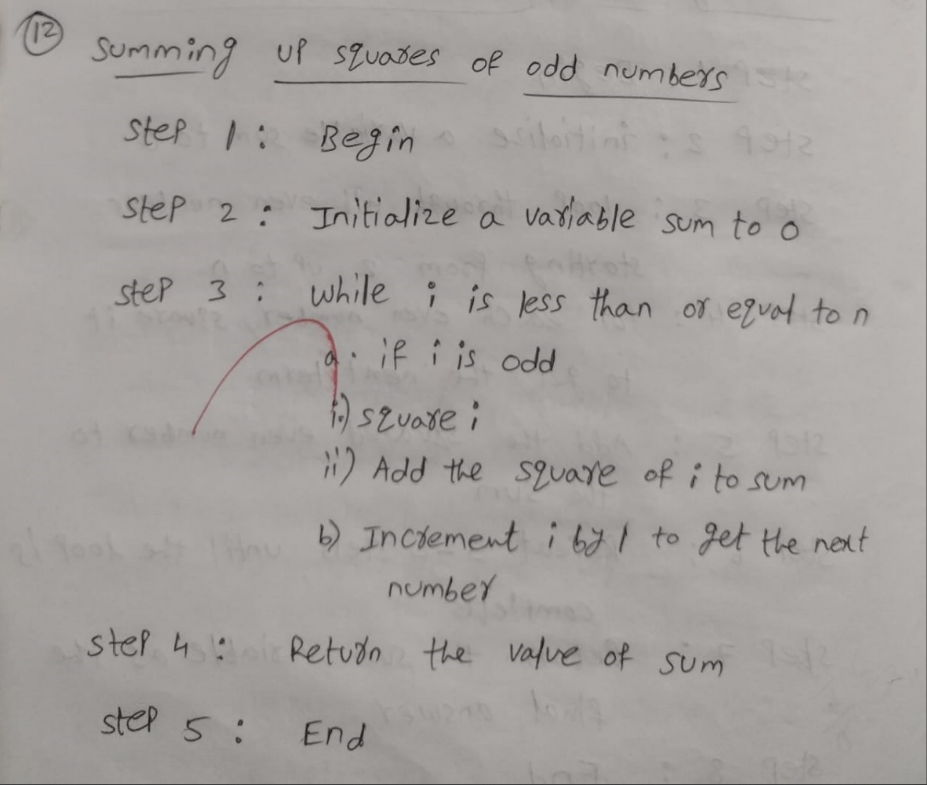 12
Summing up squares of odd numbers
Step 1 : Begin
Step 2 : Initialize a variable sum to 0
Step 3 : While i is less than or equal to n
a. if i is odd
i.) square i
ii) Add the square of i to sum
b) Increment i by 1 to get the next
number
Step 4 : Return the value of sum
Step 5 : End